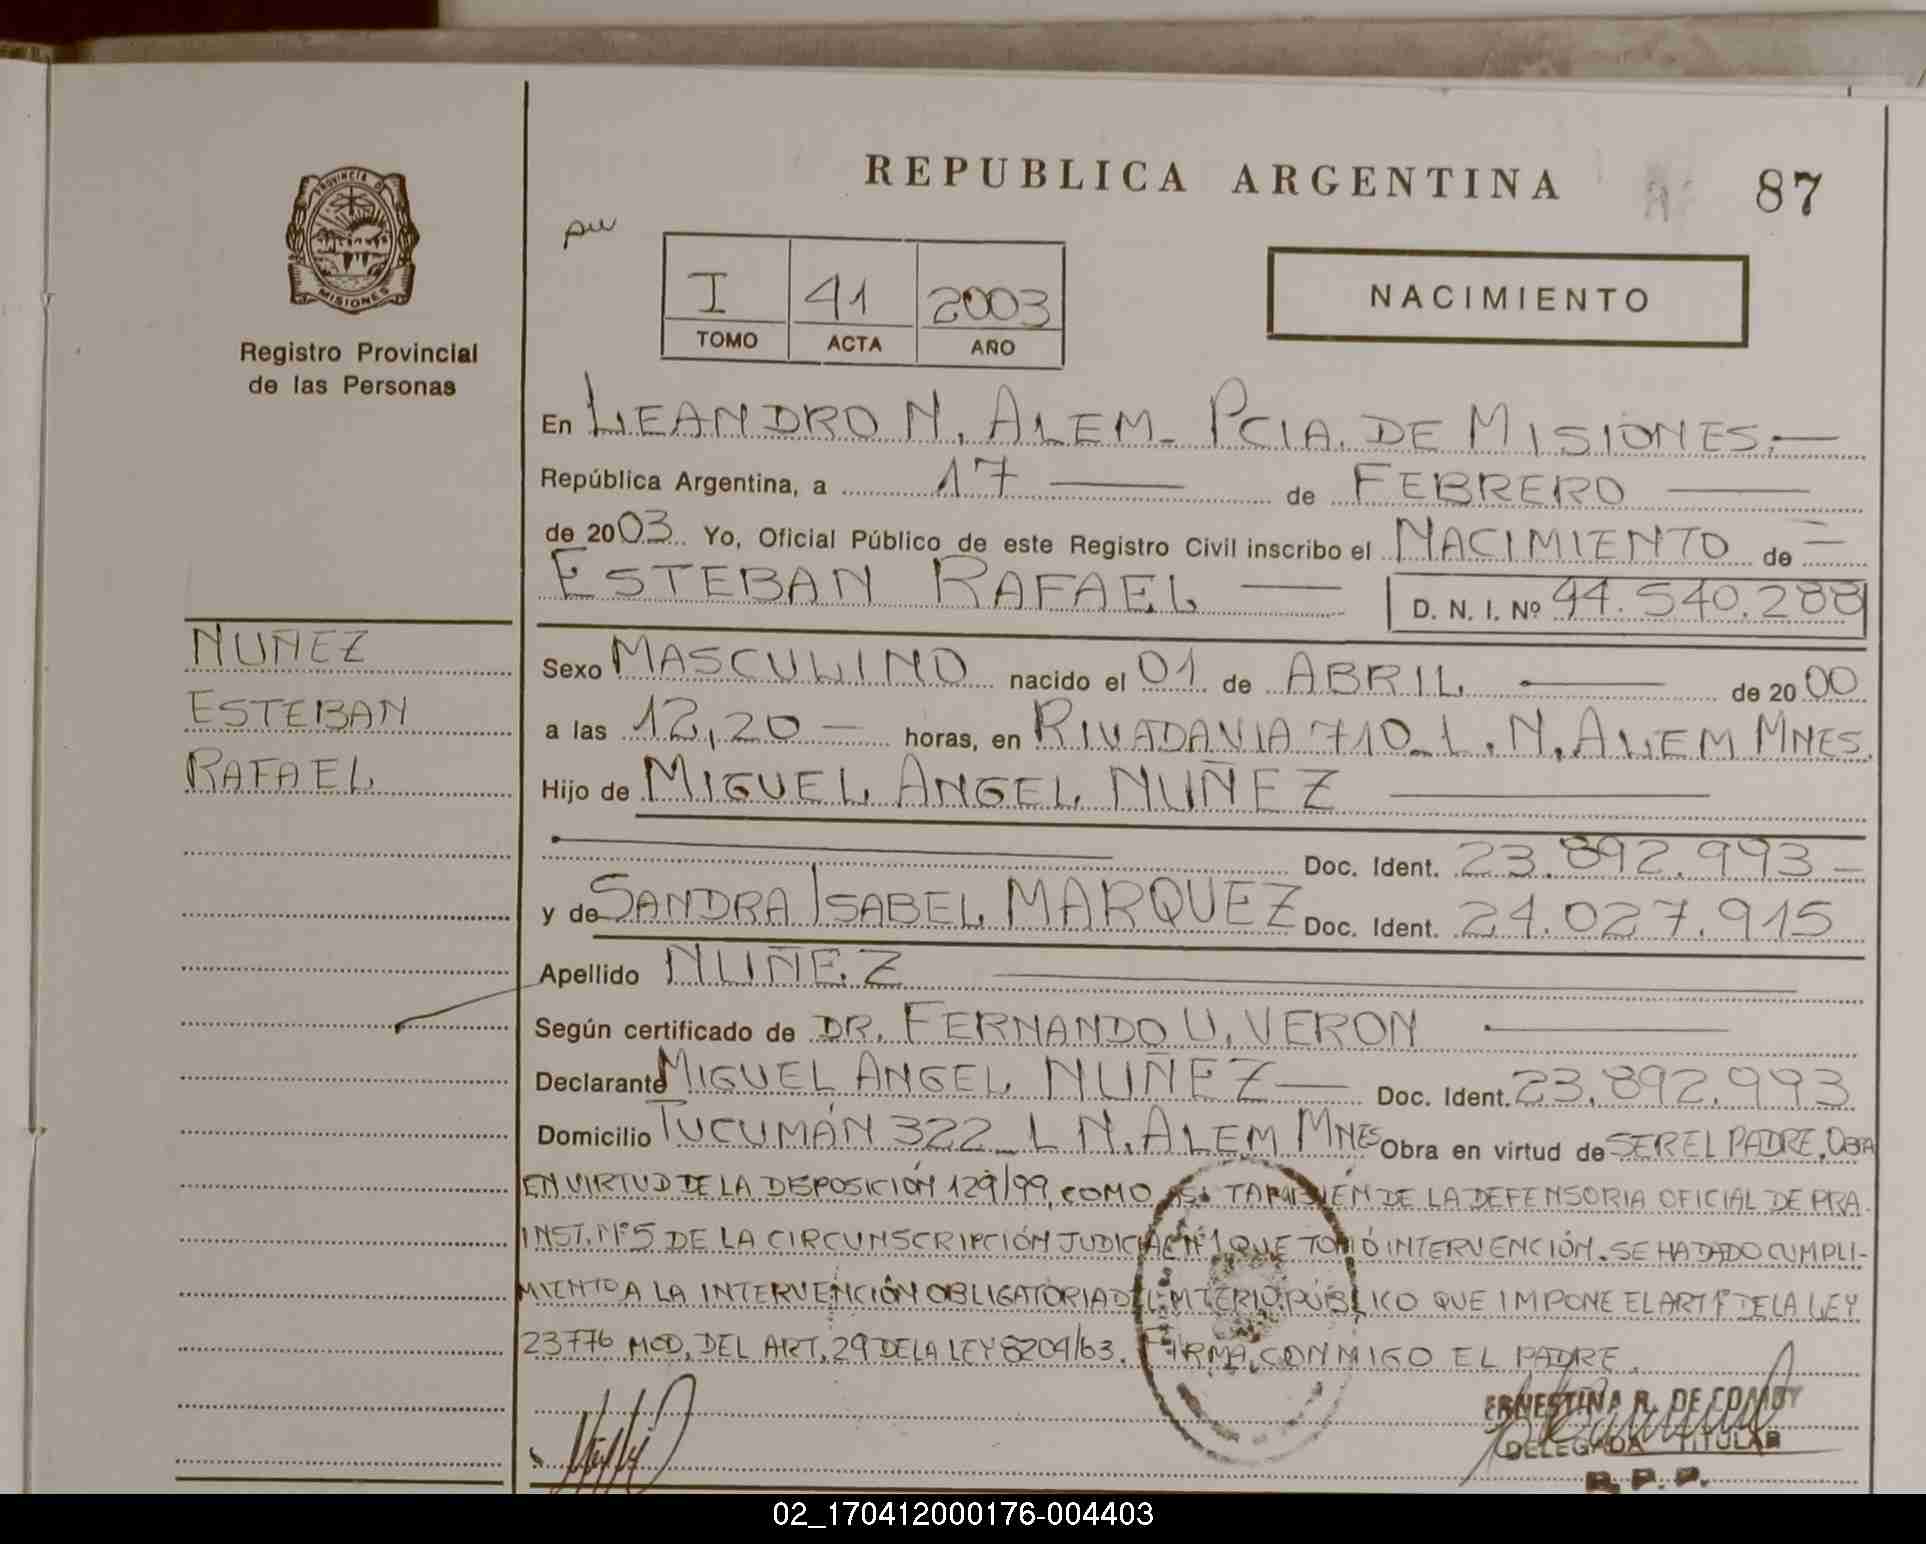 REPUBLICA ARGENTINA
87
PROVINCIA D
MISIONES
Registro Provincial
de las Personas
I 41 2003
TOMO ACTA AÑO
NACIMIENTO
En LEANDRO N. ALEM - PCIA. DE MISIONES.-
República Argentina, a 17 — de FEBRERO —
de 2003 Yo, Oficial Público de este Registro Civil inscribo el NACIMIENTO de =
ESTEBAN RAFAEL — D. N. I. Nº 44.540.288
NUÑEZ
ESTEBAN
RAFAEL
Sexo MASCULINO nacido el 01 de ABRIL — de 2000
a las 12,20 — horas, en RIVADAVIA 710 - L. N. ALEM MNES.
Hijo de MIGUEL ANGEL NUÑEZ —
— Doc. Ident. 23.892.993 —
y de SANDRA ISABEL MARQUEZ Doc. Ident. 24.027.915
Apellido NUÑEZ —
Según certificado de DR. FERNANDO U. VERON —
Declarante MIGUEL ANGEL NUÑEZ — Doc. Ident. 23.892.993
Domicilio TUCUMÁN 322 - L N. ALEM MNES Obra en virtud de SER EL PADRE. OBRA
EN VIRTUD DE LA DISPOSICIÓN 129/99, COMO ASI TAMBIÉN DE LA DEFENSORIA OFICIAL DE PRA.
INST. Nº5 DE LA CIRCUNSCRIPCIÓN JUDICIAL Nº1 QUE TOMÓ INTERVENCIÓN. SE HA DADO CUMPLI-
MIENTO A LA INTERVENCIÓN OBLIGATORIA DEL MTERIO. PÚBLICO QUE IMPONE EL ART 1º DE LA LEY
23776 MOD. DEL ART. 29 DE LA LEY 8204/63. FIRMA CONMIGO EL PADRE.
ERNESTINA R. DE
DELEGADA TITULAR
R. P. P.
02_170412000176-004403